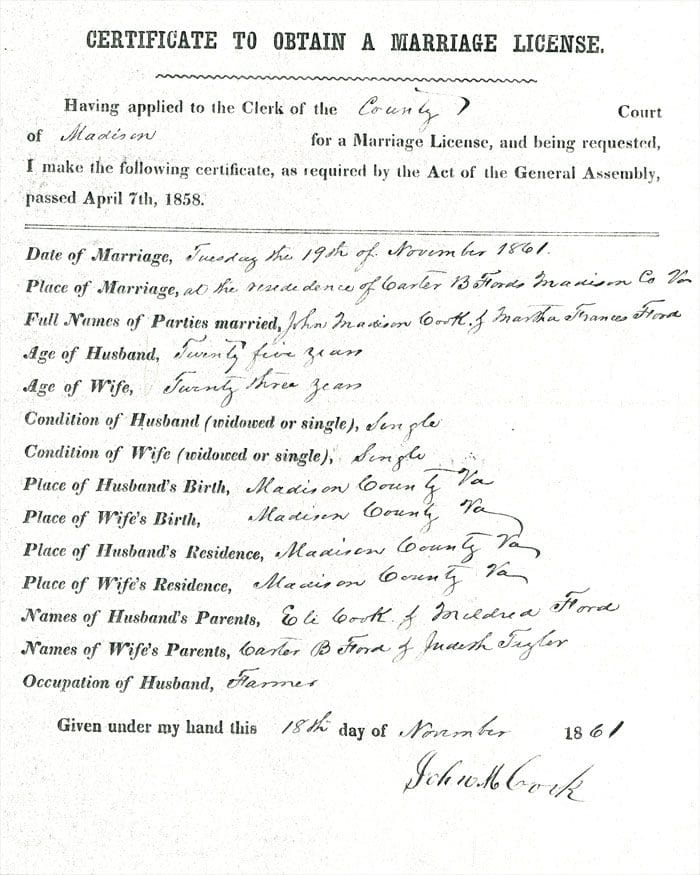 CERTIFICATE TO OBTAIN A MARRIAGE LICENSE.
Having applied to the Clerk of the County Court
of Madison for a Marriage License, and being requested,
I make the following certificate, as required by the Act of the General Assembly,
passed April 7th, 1858.
Date of Marriage, Tuesday the 19th of November 1861.
Place of Marriage, at the resedence of Carter B Fords Madison Co Va
Full Names of Parties married, John Madison Cook & Martha Frances Ford
Age of Husband, Twenty five years
Age of Wife, Twenty three years
Condition of Husband (widowed or single), Single
Condition of Wife (widowed or single), Single
Place of Husband's Birth, Madison County Va
Place of Wife's Birth, Madison County Va
Place of Husband's Residence, Madison County Va
Place of Wife's Residence, Madison County Va
Names of Husband's Parents, Eli Cook & Mildred Ford
Names of Wife's Parents, Carter B Ford &
Occupation of Husband, Farmer
Given under my hand this 18th day of November 1861
John M Cook